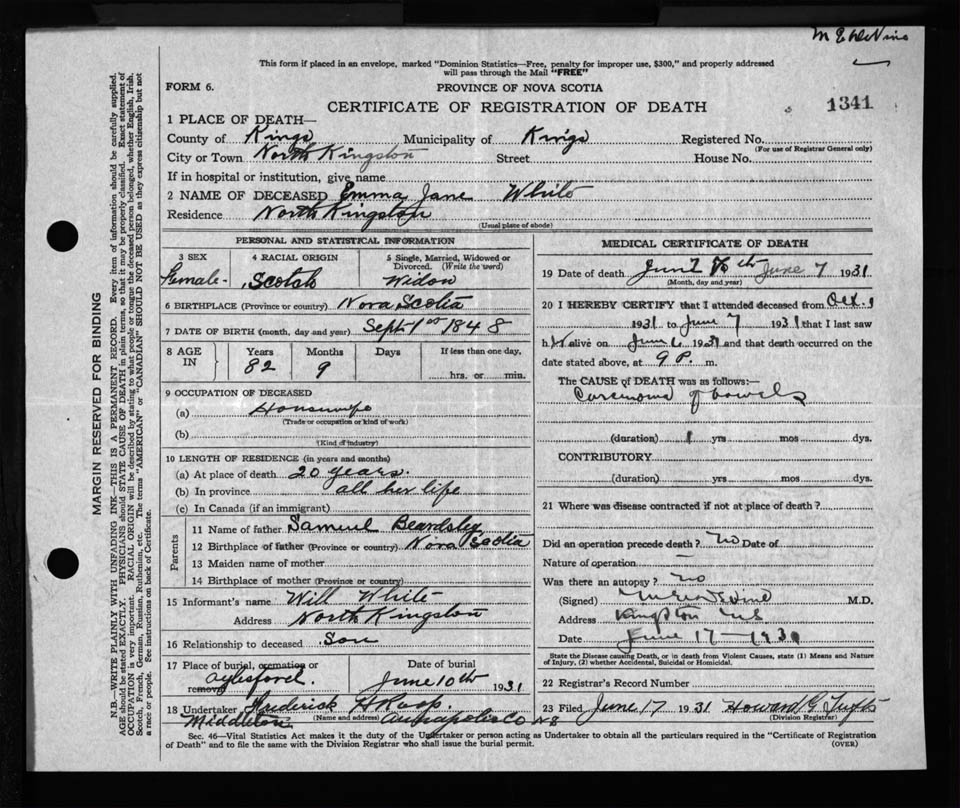 M E DeVine
This form if placed in an envelope, marked "Dominion Statistics—Free, penalty for improper use, $300," and properly addressed
will pass through the Mail "FREE"
FORM 6.
PROVINCE OF NOVA SCOTIA
CERTIFICATE OF REGISTRATION OF DEATH
1341
1 PLACE OF DEATH—
County of Kings Municipality of Kings Registered No.
(For use of Registrar General only)
City or Town North Kingston Street House No.
If in hospital or institution, give name
2 NAME OF DECEASED Emma Jane White
Residence North Kingston
(Usual place of abode)
PERSONAL AND STATISTICAL INFORMATION
3 SEX 4 RACIAL ORIGIN 5 Single, Married, Widowed or
Divorced. (Write the word)
Female Scotch Widow
6 BIRTHPLACE (Province or country) Nova Scotia
7 DATE OF BIRTH (month, day and year) Sept 1st 1848
8 AGE IN Years Months Days If less than one day,
82 9 hrs. or min.
9 OCCUPATION OF DECEASED
(a) Housewife
(Trade or occupation or kind of work)
(b)
(Kind of industry)
10 LENGTH OF RESIDENCE (in years and months)
(a) At place of death 20 years.
(b) In province all her life
(c) In Canada (if an immigrant)
Parents
11 Name of father Samuel Beardsley
12 Birthplace of father (Province or country) Nova Scotia
13 Maiden name of mother
14 Birthplace of mother (Province or country)
15 Informant's name Will White
Address North Kingston
16 Relationship to deceased Son
17 Place of burial, cremation or Date of burial
removal Aylesford. June 10th 1931
18 Undertaker Frederick A Roop.
(Name and address)
Middleton Annapolis Co N S
MEDICAL CERTIFICATE OF DEATH
19 Date of death June 7 1931
(Month, day and year)
20 I HEREBY CERTIFY that I attended deceased from
1931 to June 7 1931 that I last saw
h er alive on June 6 1931 and that death occurred on the
date stated above, at 9 P. m.
The CAUSE of DEATH was as follows:—
Carcinoma of bowels
(duration) 1 yrs mos dys.
CONTRIBUTORY
(duration) yrs mos dys.
21 Where was disease contracted if not at place of death?
Did an operation precede death? no Date of
Nature of operation —
Was there an autopsy? no
(Signed) M.D.
Address Kingston NS
Date June 17—1931
State the Disease causing Death, or in death from Violent Causes, state (1) Means and
Nature of Injury, (2) whether Accidental, Suicidal or Homicidal.
22 Registrar's Record Number
23 Filed June 17 1931 Howard G Tufts
(Division Registrar)
Sec. 46—Vital Statistics Act makes it the duty of the Undertaker or person acting as Undertaker to obtain all the particulars required in the "Certificate of Registration
of Death" and to file the same with the Division Registrar who shall issue the burial permit.
(OVER)
MARGIN RESERVED FOR BINDING
N.B.—WRITE PLAINLY WITH UNFADING INK—THIS IS A PERMANENT RECORD. Every item of information should be carefully supplied.
AGE should be stated EXACTLY. PHYSICIANS should STATE CAUSE OF DEATH in plain terms, so that it may be properly classified. Exact statement of
OCCUPATION is very important. RACIAL ORIGIN will be described by stating to what people or tongue the deceased person belonged, whether English, Irish,
Scotch, French, German, Russian, Ruthenian, etc. The terms "AMERICAN" or "CANADIAN" SHOULD NOT BE USED as they express citizenship but not
a race or people. See instructions on back of Certificate.